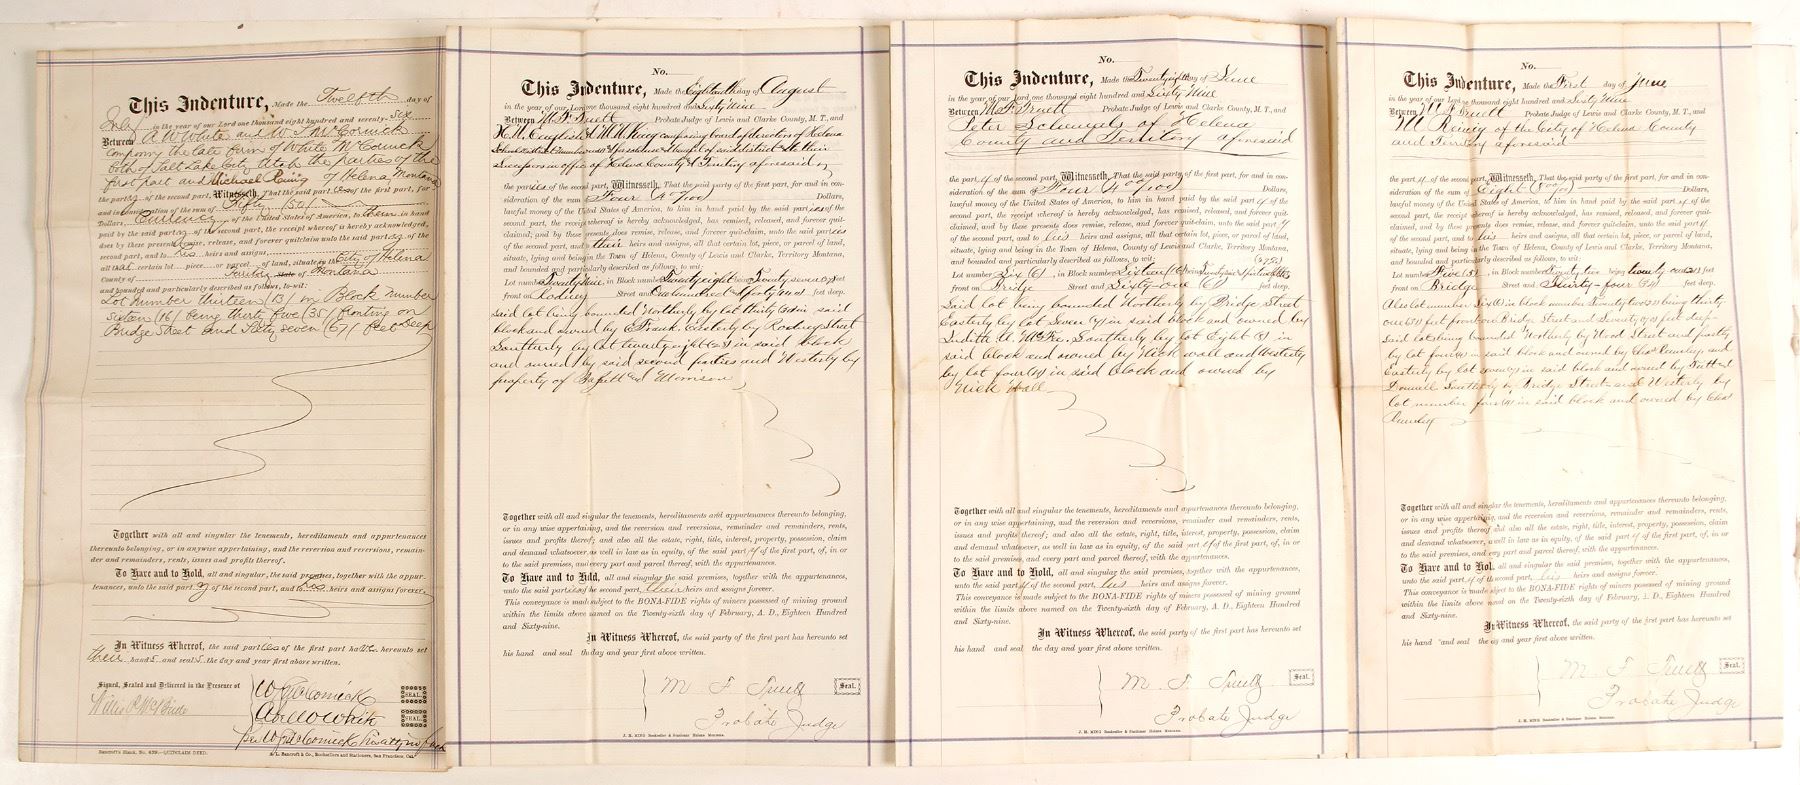 This Indenture, Made the Twelfth day of
July in the year of our Lord one thousand eight hundred and seventy-six
Between A W White and W J McCornick
composing the late firm of White McCornick
both of Salt Lake City Utah the parties of the
first part and Michael Reinig of Helena Montana
the party of the second part, Witnesseth, That the said parties of the first part, for
and in consideration of the sum of Fifty (50)
Dollars, Currency of the United States of America, to them in hand
paid by the said party of the second part, the receipt whereof is hereby acknowledged,
does by these presents release, and forever quitclaim unto the said party of the
second part, and to his heirs and assigns,
all that certain lot piece or parcel of land, situate in the City of Helena
County of Territory State of Montana
and bounded and particularly described as follows, to-wit:
Lot number thirteen (13) in Block number
sixteen (16) being thirty five (35) fronting on
Bridge Street and Sixty seven (67) feet deep
Together with all and singular the tenements, hereditaments and appurtenances
thereunto belonging, or in anywise appertaining, and the reversion and reversions, remain-
der and remainders, rents, issues and profits thereof.
To Have and to Hold, all and singular, the said premises, together with the appur-
tenances, unto the said party of the second part, and to his heirs and assigns forever.
In Witness Whereof, the said parties of the first part have hereunto set
their hands and seals the day and year first above written.
Signed, Sealed and Delivered in the Presence of
W J McCornick SEAL
A W White SEAL
per W J McCornick his atty in fact
Bancroft's Blank, No. 439—QUITCLAIM DEED.
A. L. Bancroft & Co., Booksellers and Stationers, San Francisco, Cal.
No.
This Indenture, Made the Eighteenth day of August
in the year of our Lord one thousand eight hundred and Sixty Nine
Between M. F. Truett Probate Judge of Lewis and Clarke County, M. T., and
composing board of directors of Helena
successors in office of Helena County & Territory aforesaid
the parties of the second part, Witnesseth, That the said party of the first part, for and in con-
sideration of the sum of Four (4 00/100) Dollars,
lawful money of the United States of America, to him in hand paid by the said parties of the
second part, the receipt whereof is hereby acknowledged, has remised, released, and forever quit-
claimed; and by these presents does remise, release, and forever quit-claim, unto the said parties
of the second part, and to their heirs and assigns, all that certain lot, piece, or parcel of land,
situate, lying and being in the Town of Helena, County of Lewis and Clarke, Territory Montana,
and bounded and particularly described as follows, to wit:
Lot number Twenty Nine, in Block number Twenty eight being Twenty seven (27) feet
front on Rodney Street and One hundred & forty feet deep.
said lot being bounded Northerly by lot thirty (30) in said
block and owned by C Frank. Easterly by Rodney Street
Southerly by lot twenty eight (28) in said block
and owned by said second parties and Westerly by
property of and Morrison
Together with all and singular the tenements, hereditaments and appurtenances thereunto belonging,
or in any wise appertaining, and the reversion and reversions, remainder and remainders, rents,
issues and profits thereof; and also all the estate, right, title, interest, property, possession, claim
and demand whatsoever, as well in law as in equity, of the said party of the first part, of, in or
to the said premises, and every part and parcel thereof, with the appurtenances.
To Have and to Hold, all and singular the said premises, together with the appurtenances,
unto the said parties of the second part, their heirs and assigns forever.
This conveyance is made subject to the BONA-FIDE rights of miners possessed of mining ground
within the limits above named on the Twenty-sixth day of February, A. D., Eighteen Hundred
and Sixty-nine.
In Witness Whereof, the said party of the first part has hereunto set
his hand and seal the day and year first above written.
M F Truett Seal.
Probate Judge
J. H. MING Bookseller & Stationer Helena Montana.
No.
This Indenture, Made the Twenty eighth day of June
in the year of our Lord one thousand eight hundred and Sixty Nine
Between M. F. Truett Probate Judge of Lewis and Clarke County, M. T., and
Peter of Helena
County and Territory aforesaid
the party of the second part, Witnesseth, That the said party of the first part, for and in con-
sideration of the sum of Four (4 00/100) Dollars,
lawful money of the United States of America, to him in hand paid by the said party of the
second part, the receipt whereof is hereby acknowledged, has remised, released, and forever quit-
claimed; and by these presents does remise, release, and forever quit-claim, unto the said party
of the second part, and to his heirs and assigns, all that certain lot, piece, or parcel of land,
situate, lying and being in the Town of Helena, County of Lewis and Clarke, Territory Montana,
and bounded and particularly described as follows, to wit:
Lot number Six (6), in Block number Sixteen (16) being feet
front on Bridge Street and Sixty-one (61) feet deep.
Said lot being bounded Northerly by Bridge Street
Easterly by lot Seven (7) in said block and owned by
Southerly by lot Eight (8) in
said block and owned by Nick Wall and Westerly
by lot four (4) in said block and owned by
Nick Wall
Together with all and singular the tenements, hereditaments and appurtenances thereunto belonging,
or in any wise appertaining, and the reversion and reversions, remainder and remainders, rents,
issues and profits thereof; and also all the estate, right, title, interest, property, possession, claim
and demand whatsoever, as well in law as in equity, of the said party of the first part, of, in or
to the said premises, and every part and parcel thereof, with the appurtenances.
To Have and to Hold, all and singular the said premises, together with the appurtenances,
unto the said party of the second part, his heirs and assigns forever.
This conveyance is made subject to the BONA-FIDE rights of miners possessed of mining ground
within the limits above named on the Twenty-sixth day of February, A. D., Eighteen Hundred
and Sixty-nine.
In Witness Whereof, the said party of the first part has hereunto set
his hand and seal the day and year first above written.
M. F. Truett Seal.
Probate Judge
J. H. MING Bookseller & Stationer Helena Montana.
No.
This Indenture, Made the First day of June
in the year of our Lord one thousand eight hundred and Sixty Nine
Between M F Truett Probate Judge of Lewis and Clarke County, M. T., and
M Reinig of the City of Helena County
and Territory aforesaid
the party of the second part, Witnesseth, That the said party of the first part, for and in con-
sideration of the sum of Eight (8 00/100) Dollars,
lawful money of the United States of America, to him in hand paid by the said party of the
second part, the receipt whereof is hereby acknowledged, has remised, released, and forever quit-
claimed; and by these presents does remise, release, and forever quit-claim, unto the said party
of the second part, and to his heirs and assigns, all that certain lot, piece, or parcel of land,
situate, lying and being in the Town of Helena, County of Lewis and Clarke, Territory Montana,
and bounded and particularly described as follows, to wit:
Lot number Five (5), in Block number Twenty two being twenty one (21) feet
front on Bridge Street and Thirty-four (34) feet deep.
Also lot number Six (6) in block number Twenty two (22) being thirty
one (31) feet front on Bridge Street and Seventy (70) feet deep
Said lots being bounded Northerly by Wood Street and partly
by lot four (4) in said block and owned by Chas and
Easterly by lot seven (7) in said block and owned by
Southerly by Bridge Street and Westerly by
lot number four (4) in said block and owned by Chas
Together with all and singular the tenements, hereditaments and appurtenances thereunto belonging,
or in any wise appertaining, and the reversion and reversions, remainder and remainders, rents,
issues and profits thereof and also all the estate, right, title, interest, property, possession, claim
and demand whatsoever, as well in law as in equity, of the said party of the first part, of, in or
to the said premises, and every part and parcel thereof, with the appurtenances.
To Have and to Hold, all and singular the said premises, together with the appurtenances,
unto the said party of the second part, his heirs and assigns forever.
This conveyance is made subject to the BONA-FIDE rights of miners possessed of mining ground
within the limits above named on the Twenty-sixth day of February, A. D., Eighteen Hundred
and Sixty-nine.
In Witness Whereof, the said party of the first part has hereunto set
his hand and seal the day and year first above written.
M. F. Truett Seal.
Probate Judge
J. H. MING Bookseller & Stationer Helena Montana.